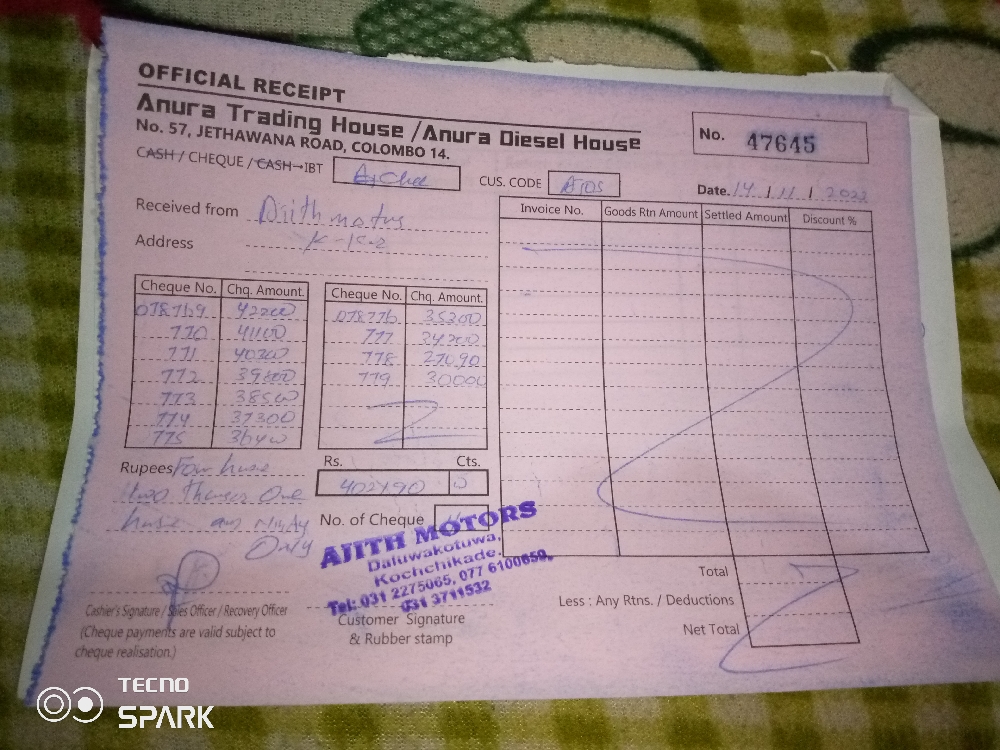 OFFICIAL RECEIPT
Anura Trading House / Anura Diesel House
No. 57, JETHAWANA ROAD, COLOMBO 14.
No. 47645
CASH / CHEQUE / CASH-IBT
CUS. CODE
Date. 14 / 11 / 2022
Received from Ajith motors
Address K-K-2
Invoice No. Goods Rtn Amount Settled Amount Discount %
Cheque No. Chq. Amount. Cheque No. Chq. Amount.
078769 42200 078776 35200
770 41100 777 34300
771 40200 778
772 39600 779 30000
773 38500
774 37300
775 36400
Rupees Four
Rs. Cts.
two One
and Ninty
Only
No. of Cheque
AJITH MOTORS
Daluwakotuwa,
Kochchikade.
Tel: 031 2275065, 077 6100650,
031 3711532
Cashier's Signature / Sales Officer / Recovery Officer
(Cheque payments are valid subject to
cheque realisation.)
Customer Signature
& Rubber stamp
Total
Less : Any Rtns. / Deductions
Net Total
TECNO
SPARK